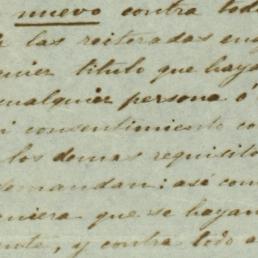 nuevo contra tod
las reiteradas en
titulo que haya
cualquier persona ó
consentimiento co
los demas requisito
demandan: asi com
niera que se hayan
ente, y contra todo a